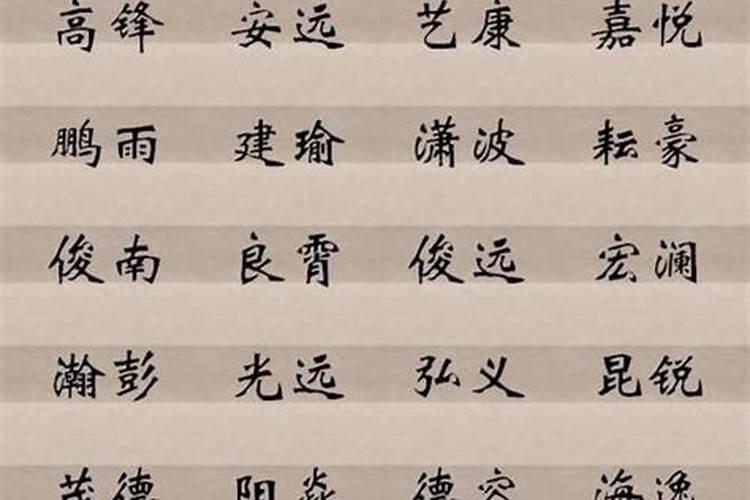 高锋 安远 艺康 嘉悦
鹏雨 建瑜 潇波 耘豪
俊南 良霄 俊远 宏澜
瀚彭 光远 弘义 昆锐
茂德 阳焱 德容 海逸